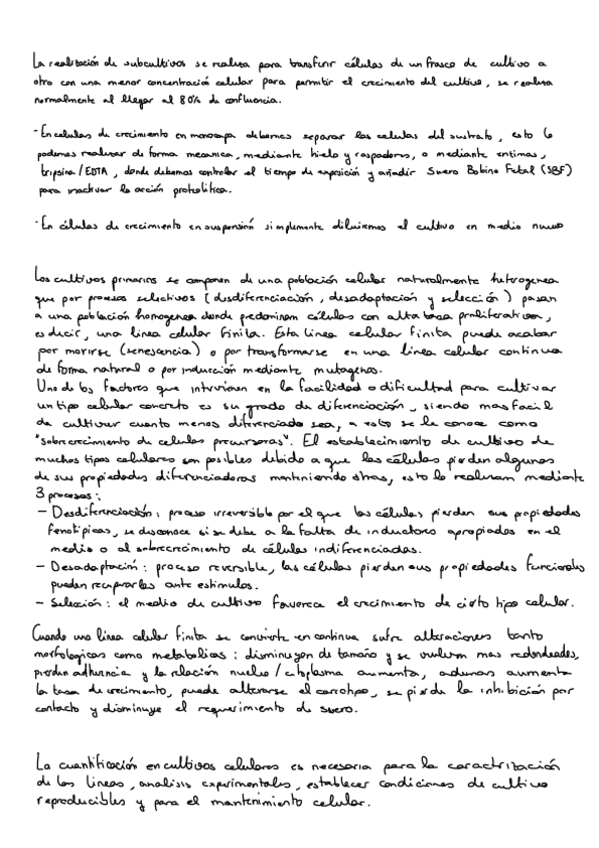 La realización de subcultivos se realiza para transferir células de un frasco de cultivo a
otro con una menor concentración celular para permitir el crecimiento del cultivo, se realiza
normalmente al llegar al 80% de confluencia.
- En celulas de crecimiento en monocapa debemos separar las celulas del sustrato, esto lo
podemos realizar de forma mecanica, mediante hielo y raspadores, o mediante enzimas,
tripsina/EDTA, donde debemos controlar el tiempo de exposición y añadir Suero Bobino Fetal (SBF)
para inactivar la acción proteolitica.
- En células de crecimiento en suspensión simplemente diluiremos el cultivo en medio nuevo
Los cultivos primarios se componen de una población celular naturalmente heterogenea
que por procesos selectivos (desdiferenciación, desadaptación y selección) pasan
a una población homogenea donde predominan células con alta tasa proliferativa,
es decir, una linea celular finita. Esta linea celular finita puede acabar
por morirse (senescencia) o por transformarse en una linea celular continua
de forma natural o por inducción mediante mutagenos.
Uno de los factores que intervienen en la facilidad o dificultad para cultivar
un tipo celular concreto es su grado de diferenciación, siendo mas facil
de cultivar cuanto menos diferenciado sea, a esto se le conoce como
"sobrecrecimiento de celulas precursoras". El establecimiento de cultivo de
muchos tipos celulares son posibles debido a que las células pierden algunas
de sus propiedades diferenciadoras manteniendo otras, esto lo realizan mediante
3 procesos:
- Desdiferenciación: proceso irreversible por el que las células pierden sus propiedades
fenotípicas, se desconoce si se debe a la falta de inductores apropiados en el
medio o al sobrecrecimiento de células indiferenciadas.
- Desadaptación: proceso reversible, las células pierden sus propiedades funcionales
pueden recuperarlas ante estimulos.
- Selección: el medio de cultivo favorece el crecimiento de cierto tipo celular.
Cuando una linea celular finita se convierte en continua sufre alteraciones tanto
morfologicas como metabolicas: disminuyen de tamaño y se vuelven mas redondeadas,
pierden adherencia y la relación nucleo/citoplasma aumenta, ademas aumenta
la tasa de crecimiento, puede alterarse el cariotipo, se pierde la inhibición por
contacto y disminuye el requerimiento de suero.
La cuantificación en cultivos celulares es necesaria para la caracterización
de las lineas, analisis experimentales, establecer condiciones de cultivo
reproducibles y para el mantenimiento celular.